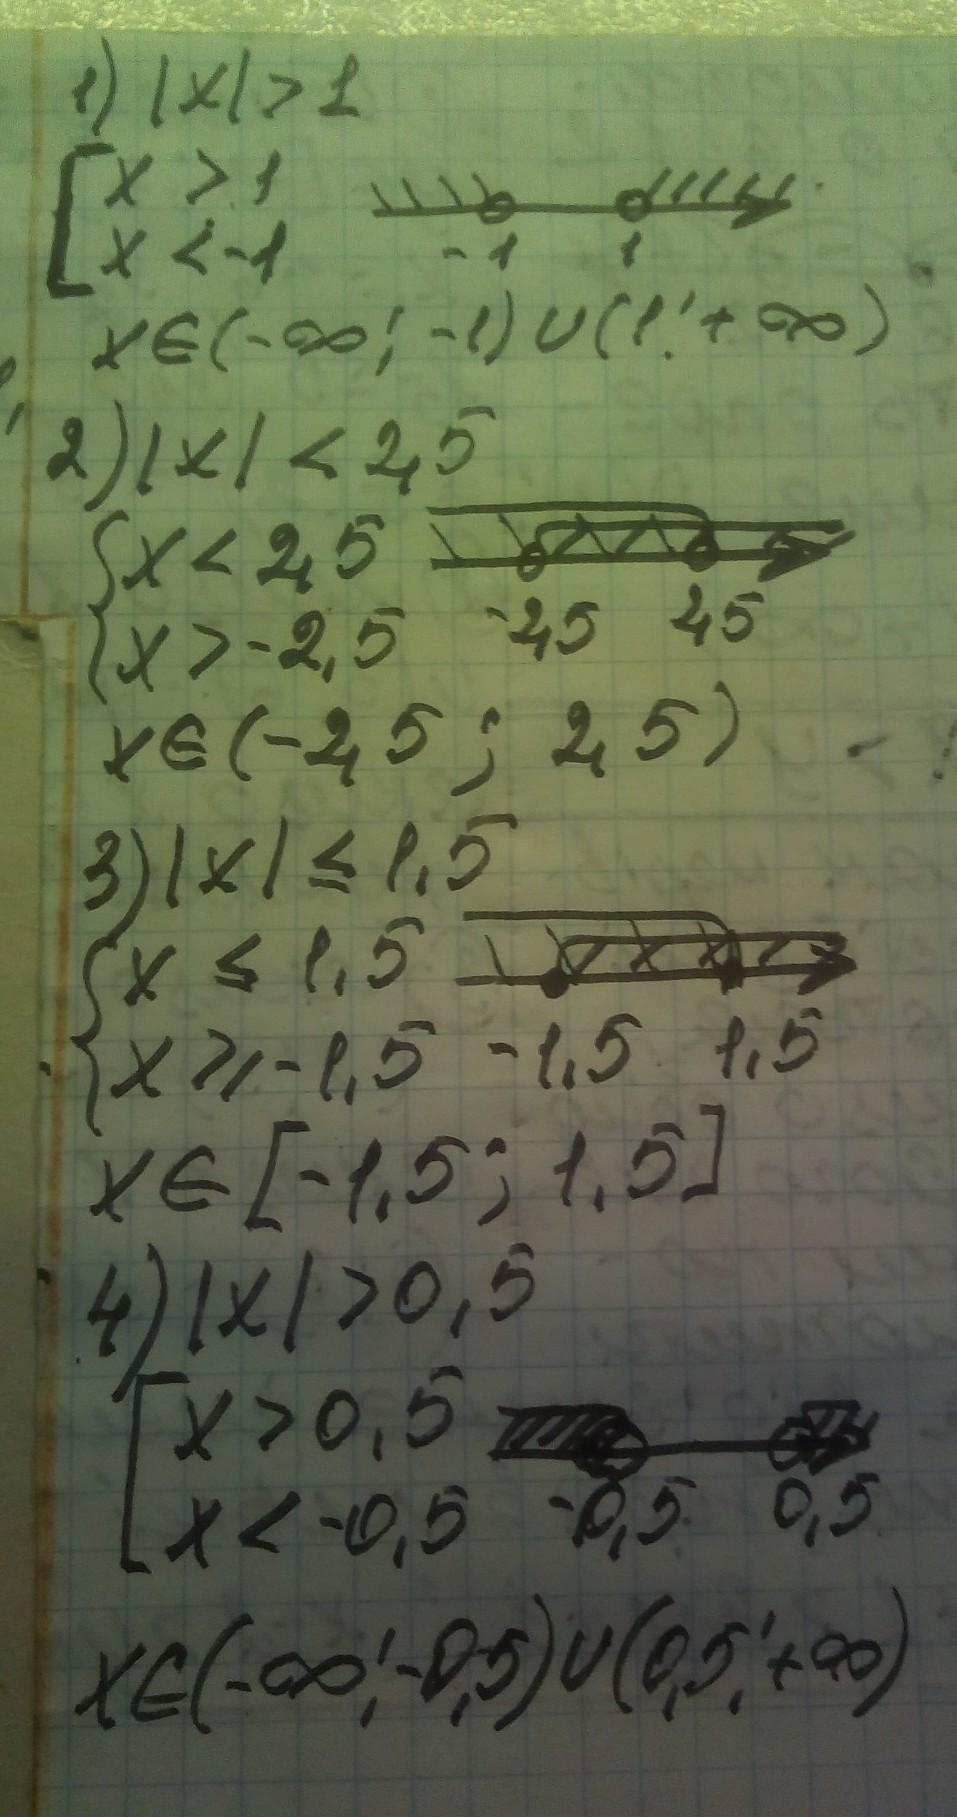 1) |x| > 1
[ x > 1
x < -1
-1 1
x ∈ (-∞; -1) ∪ (1; +∞)
2) |x| < 2,5
{ x < 2,5
x > -2,5
-2,5 2,5
x ∈ (-2,5 ; 2,5)
3) |x| ≤ 1,5
{ x ≤ 1,5
x ⩾ -1,5
-1,5 1,5
x ∈ [-1,5 ; 1,5]
4) |x| > 0,5
[ x > 0,5
x < -0,5
-0,5 0,5
x ∈ (-∞; -0,5) ∪ (0,5; +∞)